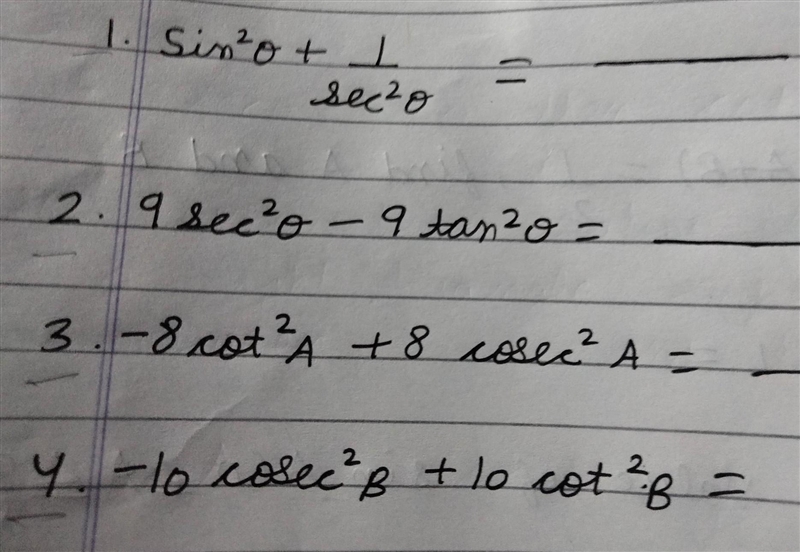 1. sin²θ + 1/sec²θ = ____
2. 9 sec²θ − 9 tan²θ = ____
3. −8 cot²A + 8 cosec²A = __
4. −10 cosec²B + 10 cot²B =